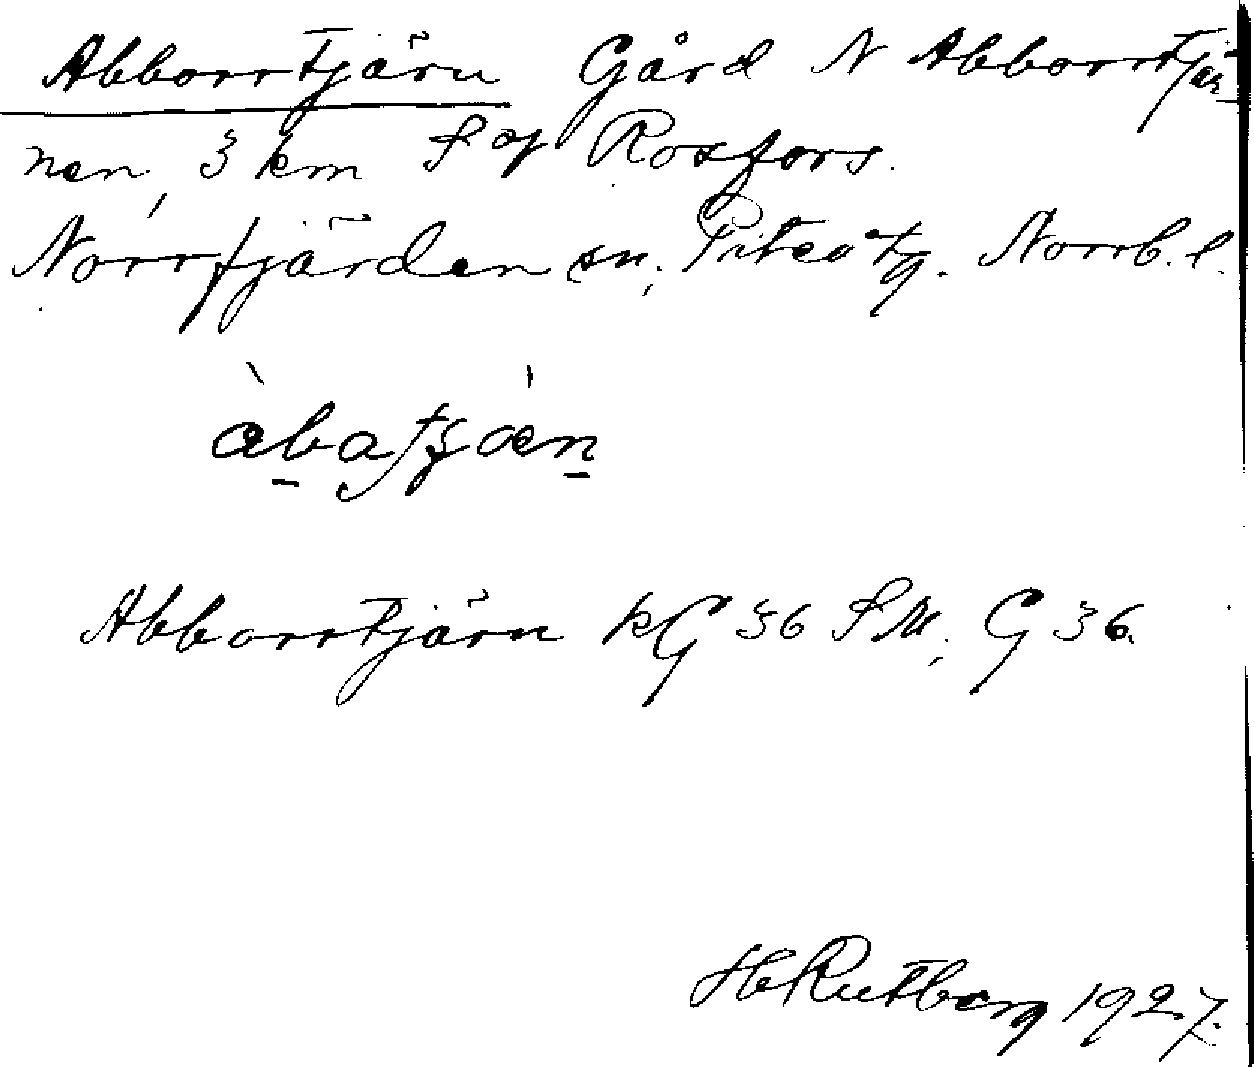 Abborrtjärn Gård N Abborrtjär
nen, 3 km S of Rosfors.
Norrfjärden sn, Piteå tg. Norrb. l.
Abborrtjärn kG 36 SM, G 36.
H Rutberg 1927.